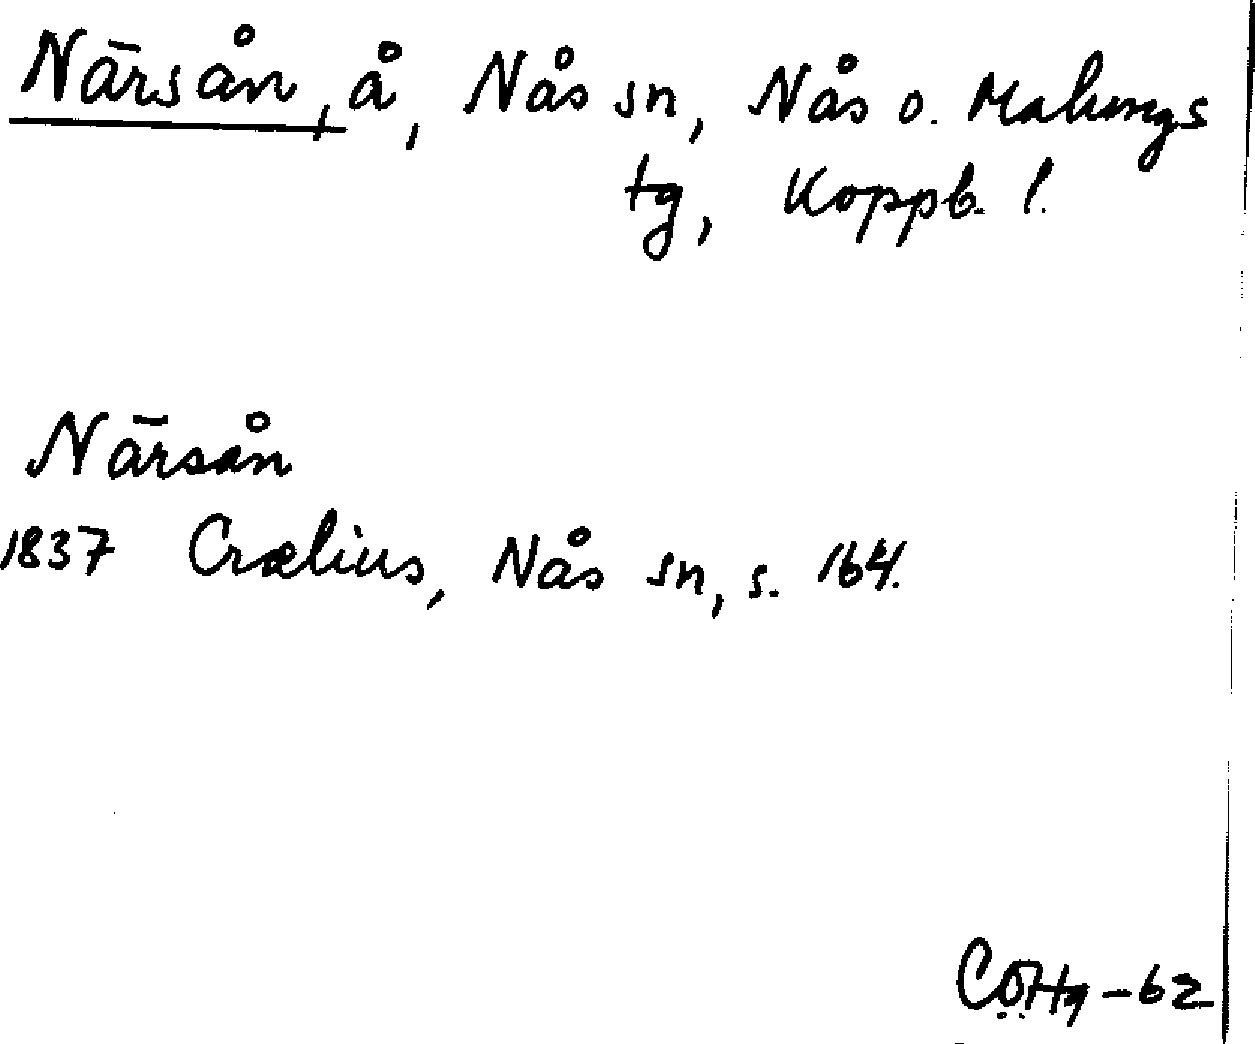 Närsån, å, Nås sn, Nås o. Malungs
tg, Koppb. l.
Närsån
1837 Crælius, Nås sn, s. 164.